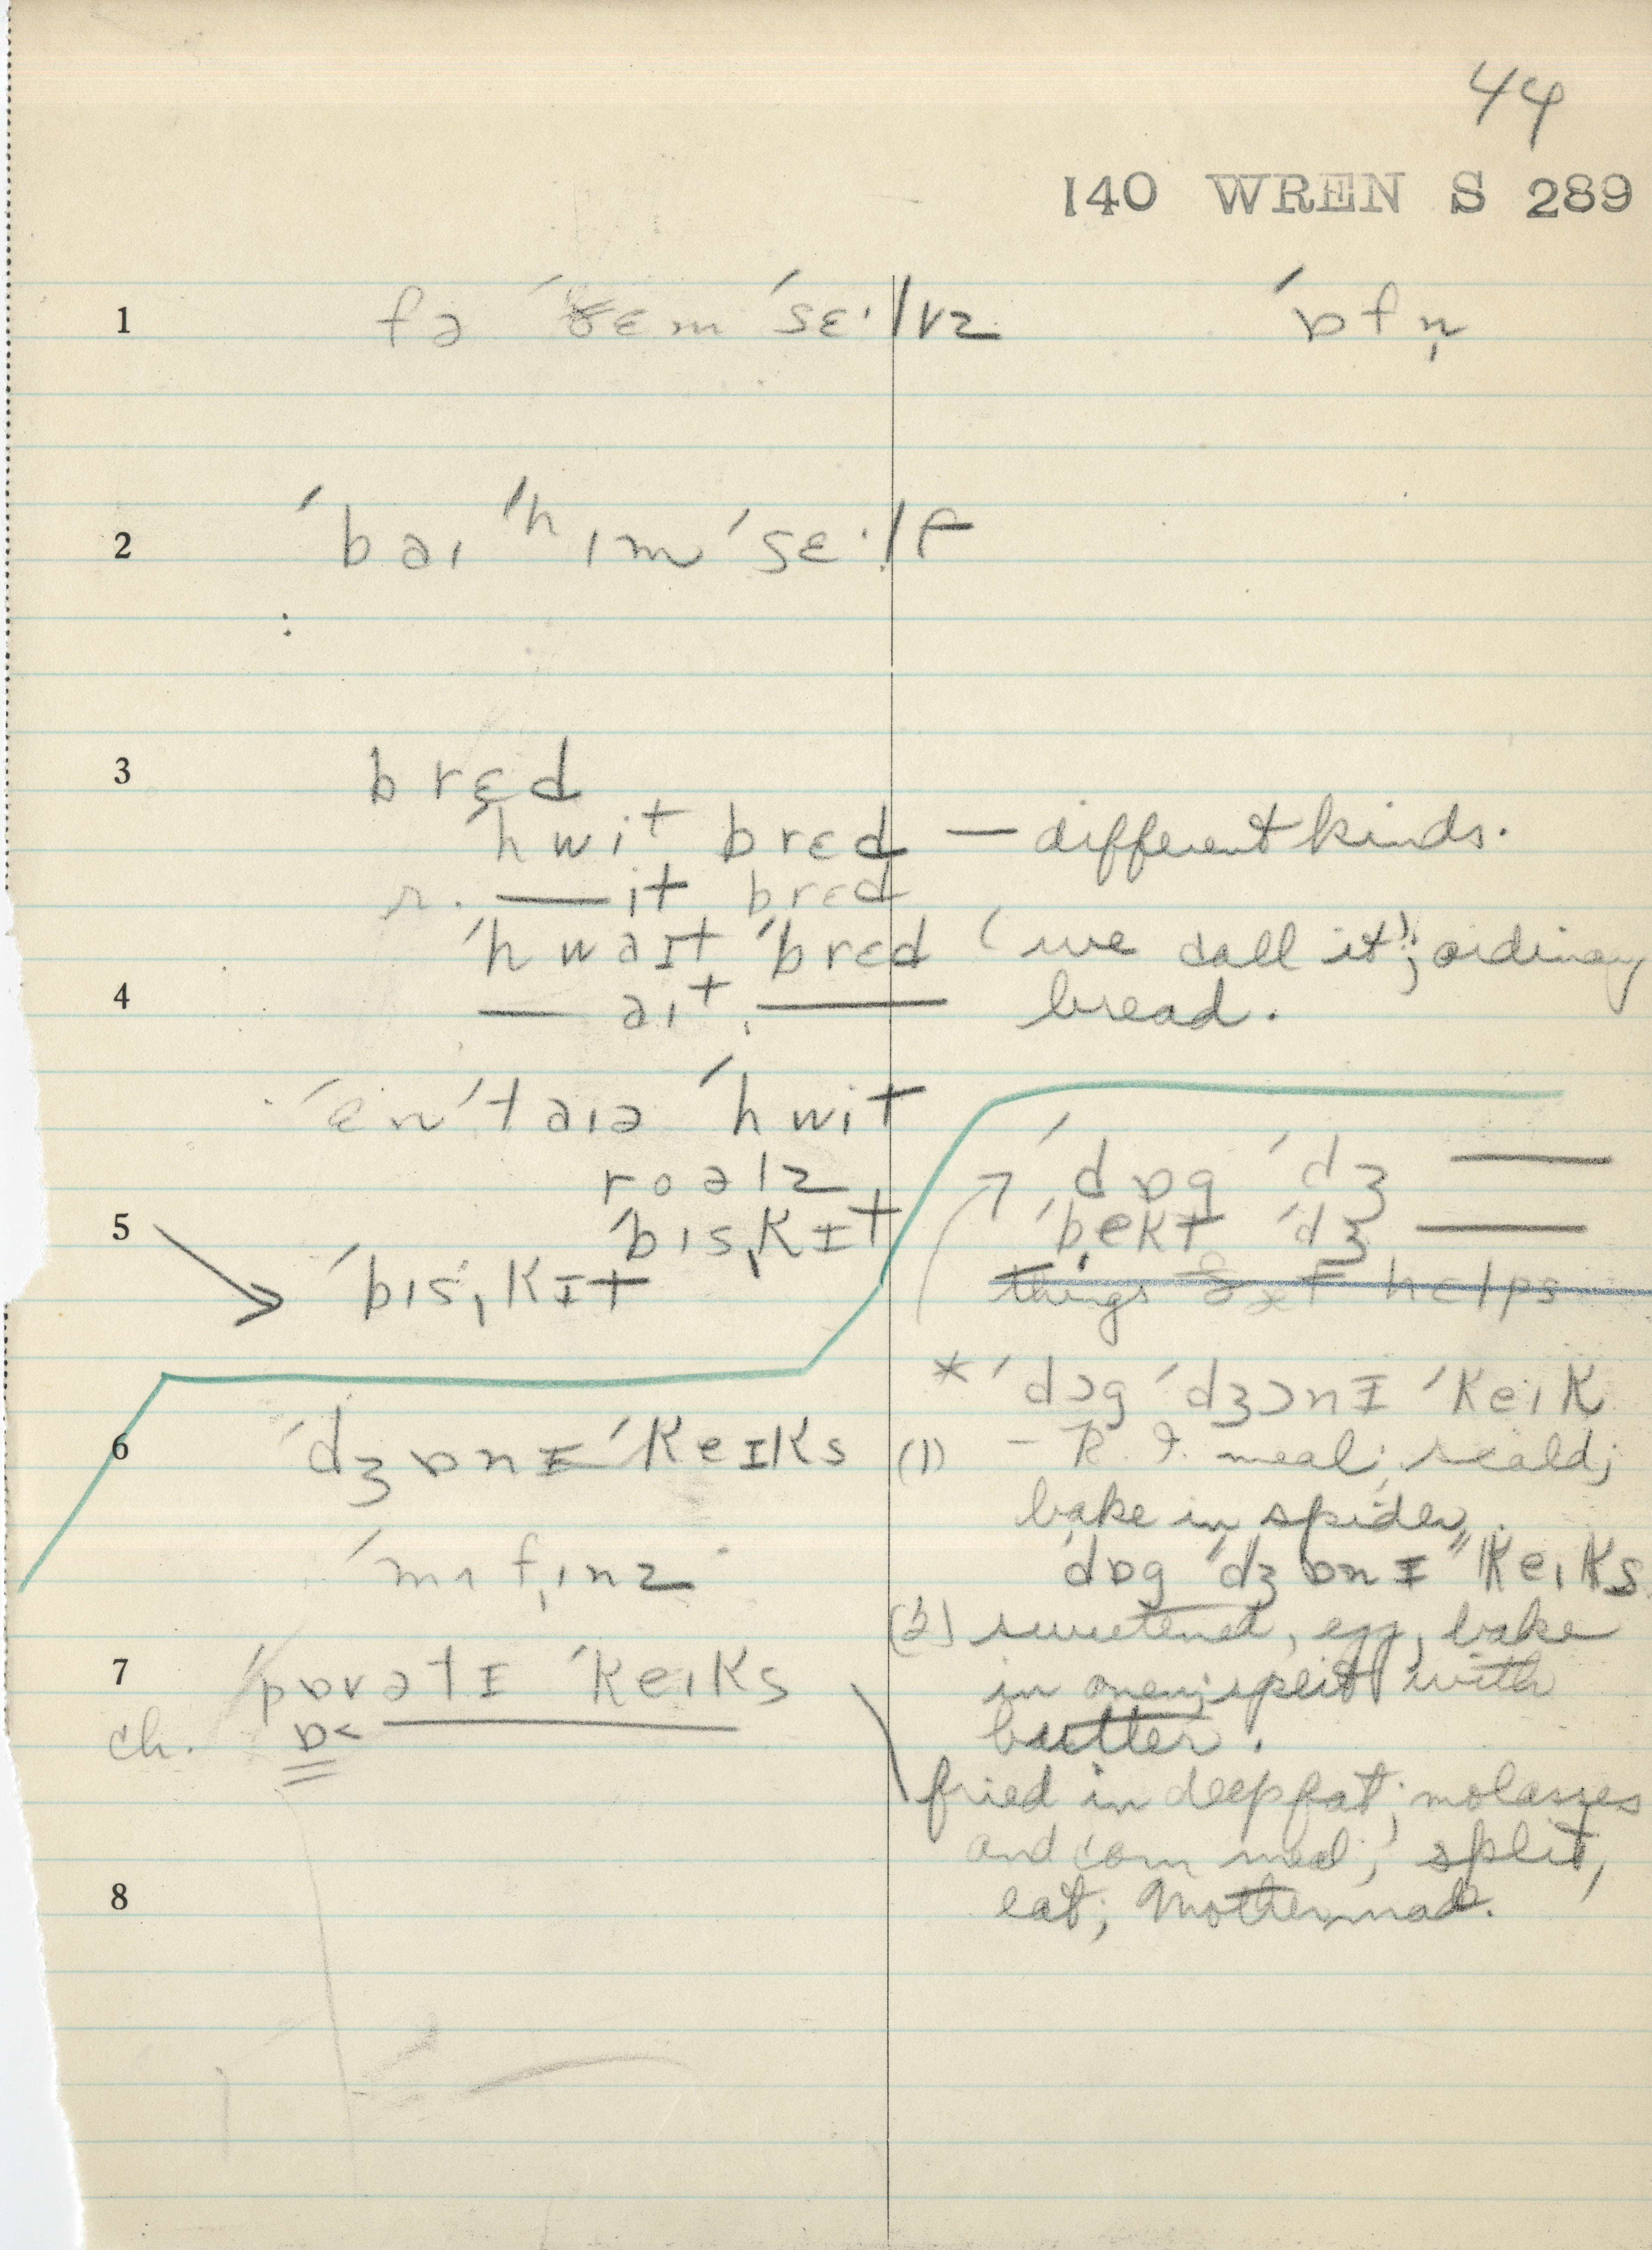 44
140 WREN S 289
1 fə ˈðɛm ˈsɛ·lvz ˈɒfn̩
2 ˈbaɪ ˈhɪm ˈsɛ·lf
3 brɛd
ˈhwit brɛd — different kinds.
r. — it brɛd
ˈhwaɪt ˈbrɛd (we call it); ordinary
4 — aɪt — bread.
ˈɛnˈtaɪə ˈhwit
roəlz ˈdɒg ˈdʒ —
5 ˈbɪsˌkɪt ˈbekt ˈdʒ —
ˈbɪsˌkɪt things helps
* ˈdɔg ˈdʒɔnɪ ˈkeɪk
6 ˈdʒɒnɪ ˈkeɪks (1) – R. I. meal; scald;
bake in spider.
ˈmʌfˌɪnz ˈdɒg ˈdʒɒnɪ ˈkeɪks
(2) sweetened, egg, bake
7 ˈpɒvətɪ ˈkeɪks in oven; split with
ch. ɒ< — butter.
fried in deep fat; molasses
and corn meal; split,
8 eat; Mother made.